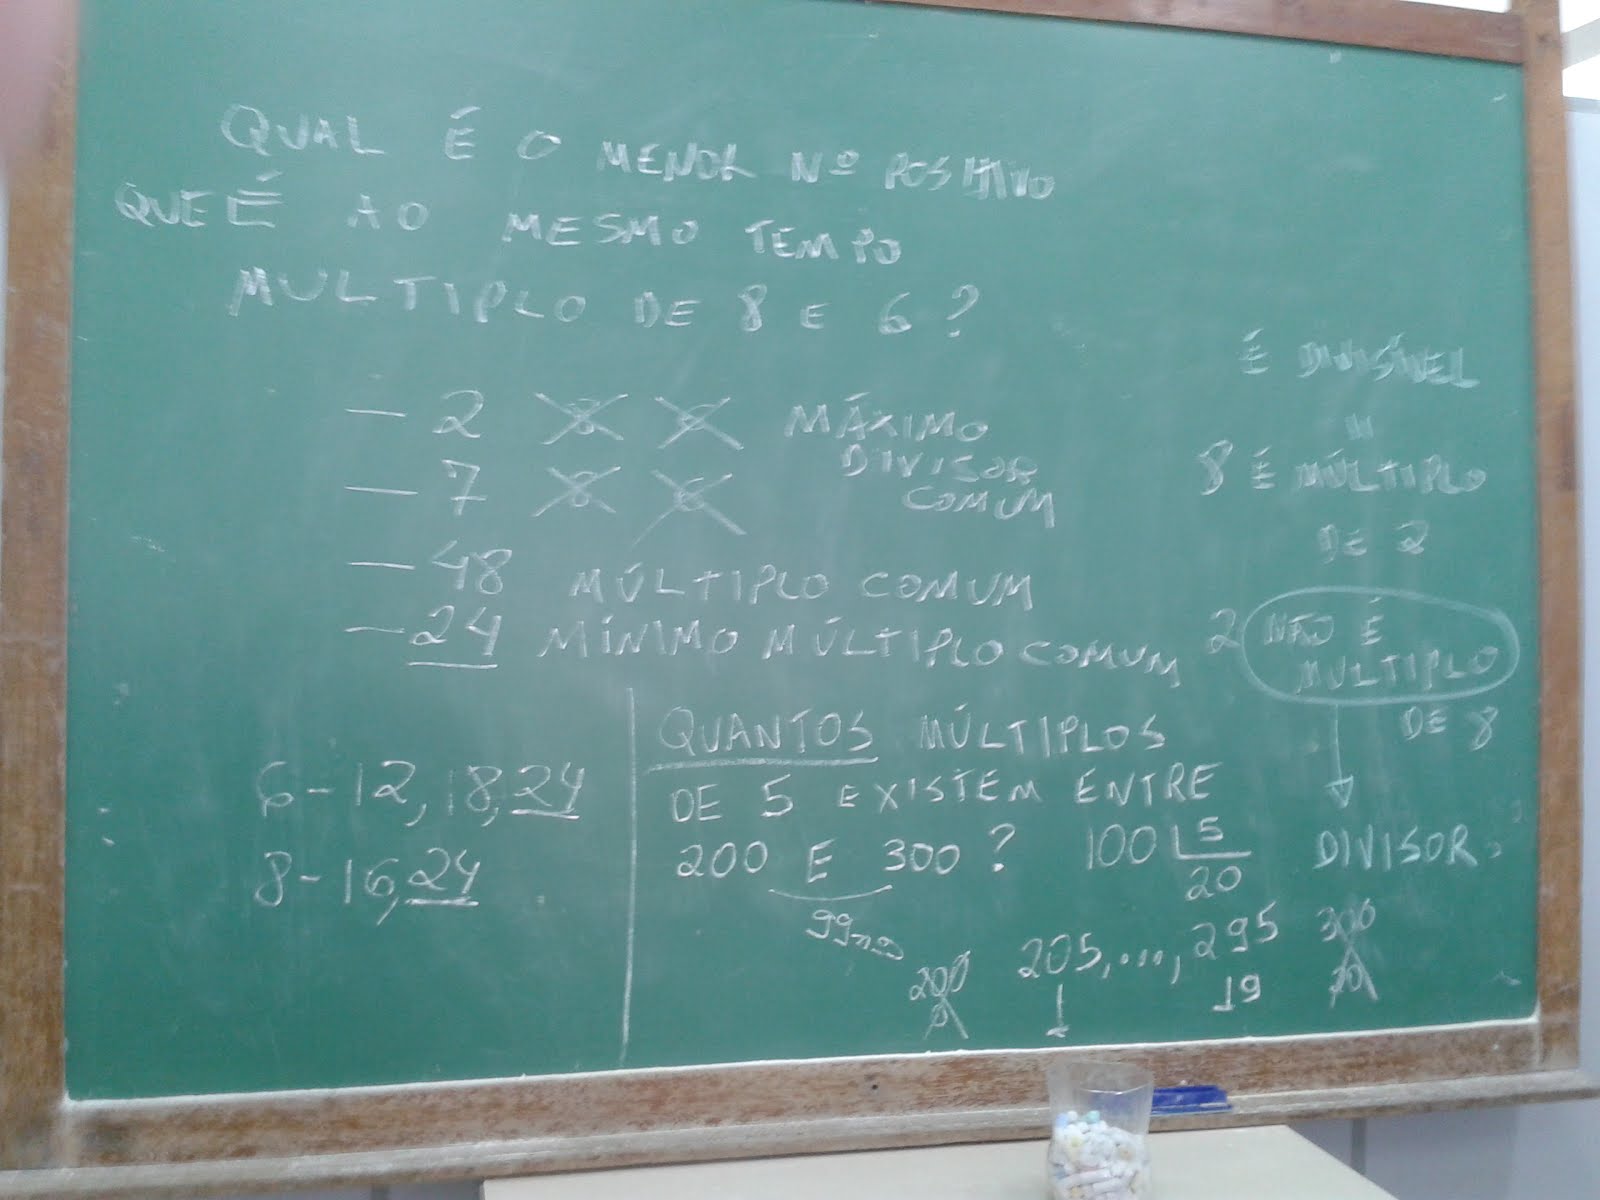 QUAL É O MENOR Nº POSITIVO
QUE É AO MESMO TEMPO
MULTIPLO DE 8 E 6 ?
— 2 8 6 MÁXIMO
DIVISOR
COMUM
— 7 8 6
— 48 MÚLTIPLO COMUM
— 24 MÍNIMO MÚLTIPLO COMUM
É DIVISÍVEL
8 É MÚLTIPLO
DE 2
2 NÃO É
MULTIPLO
DE 8
DIVISOR
6 - 12, 18, 24
8 - 16, 24
QUANTOS MÚLTIPLOS
DE 5 EXISTEM ENTRE
200 E 300 ? 100 5
20
99
200 205, ..., 295 300
19